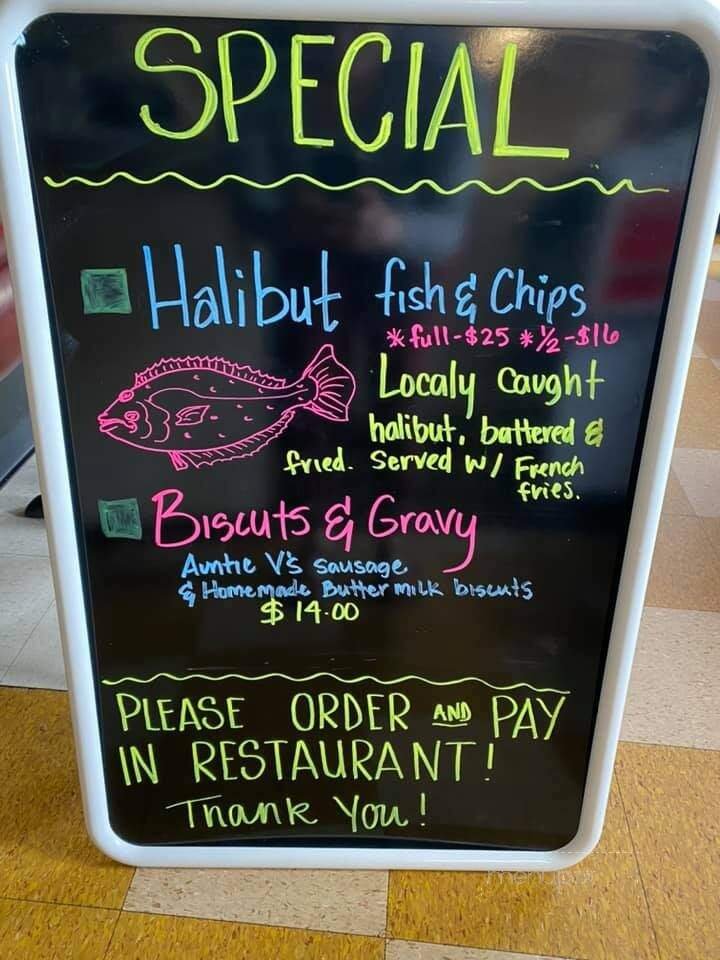 SPECIAL
Halibut fish & Chips
* full-$25 * ½-$16
Localy Caught
halibut, battered &
fried. Served w/ French
fries.
Biscuts & Gravy
Auntie V's sausage
& Homemade Butter milk biscuts
$ 14.00
PLEASE ORDER AND PAY
IN RESTAURANT!
Thank You!